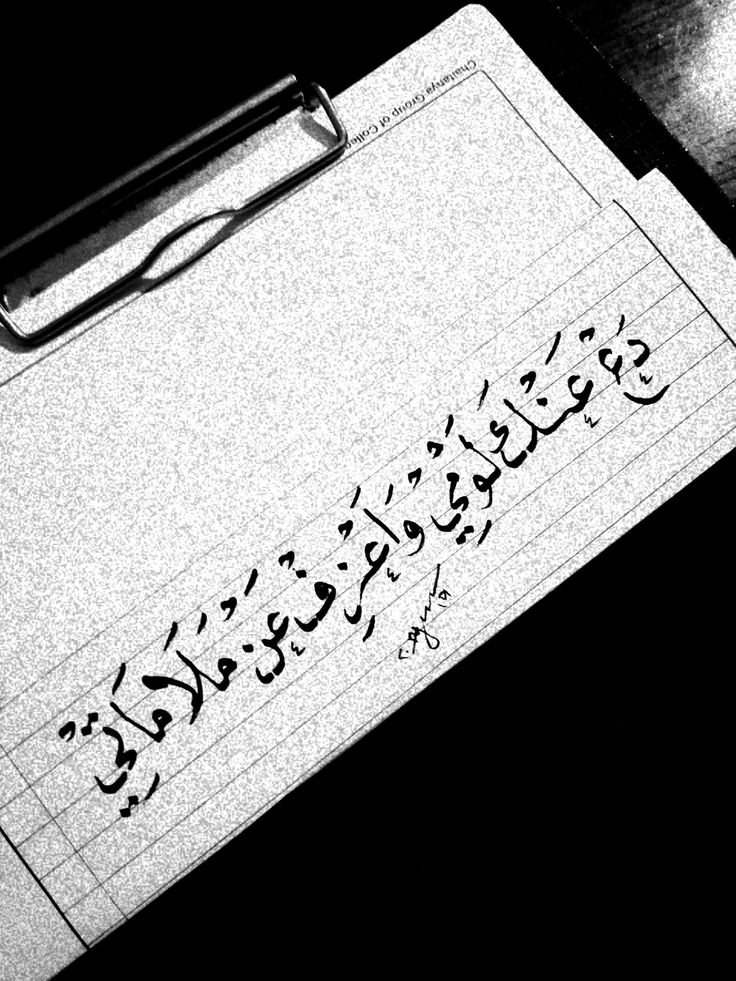 Chaitanya Group of Colle
دَعْ عَنْكَ لَوْمِي وَاعْزِفْ عَنْ مَلَامَاتِيْ